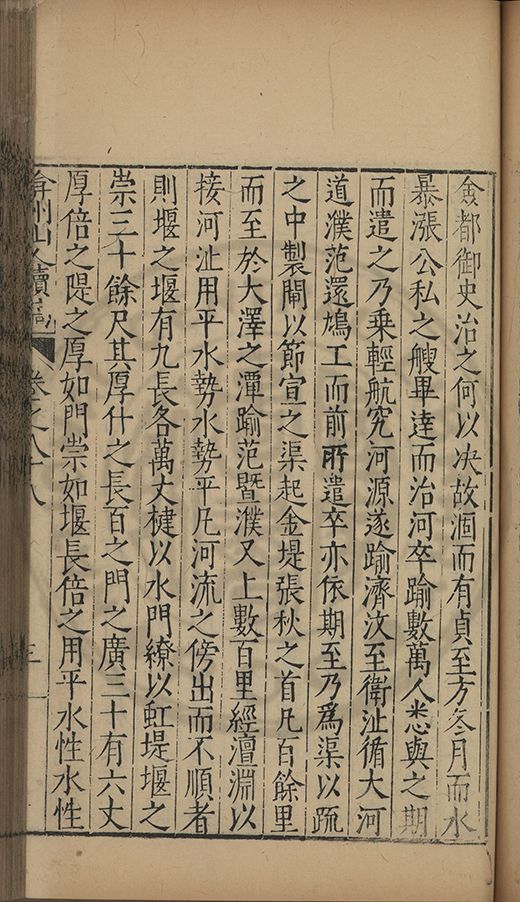 僉都御史治之何以决故涸而有貞至方冬月而水
暴漲公私之艘畢達而治河卒踰數萬人悉與之期
而遣之乃乘輕航究河源遂踰濟汶至衛沚循大河
道濮范還鳩工而前所遣卒亦依期至乃爲渠以疏
之中製閘以節宣之渠起金堤張秋之首凡百餘里
而至於大澤之潭踰范暨濮又上數百里經澶淵以
接河沚用平水勢水勢平凡河流之傍出而不順者
則堰之堰有九長各萬丈楗以水門繚以虹堤堰之
崇三十餘尺其厚什之長百之門之廣三十有六丈
厚倍之隄之厚如門崇如堰長倍之用平水性水性
弇州山人續稿 卷之八十八 三